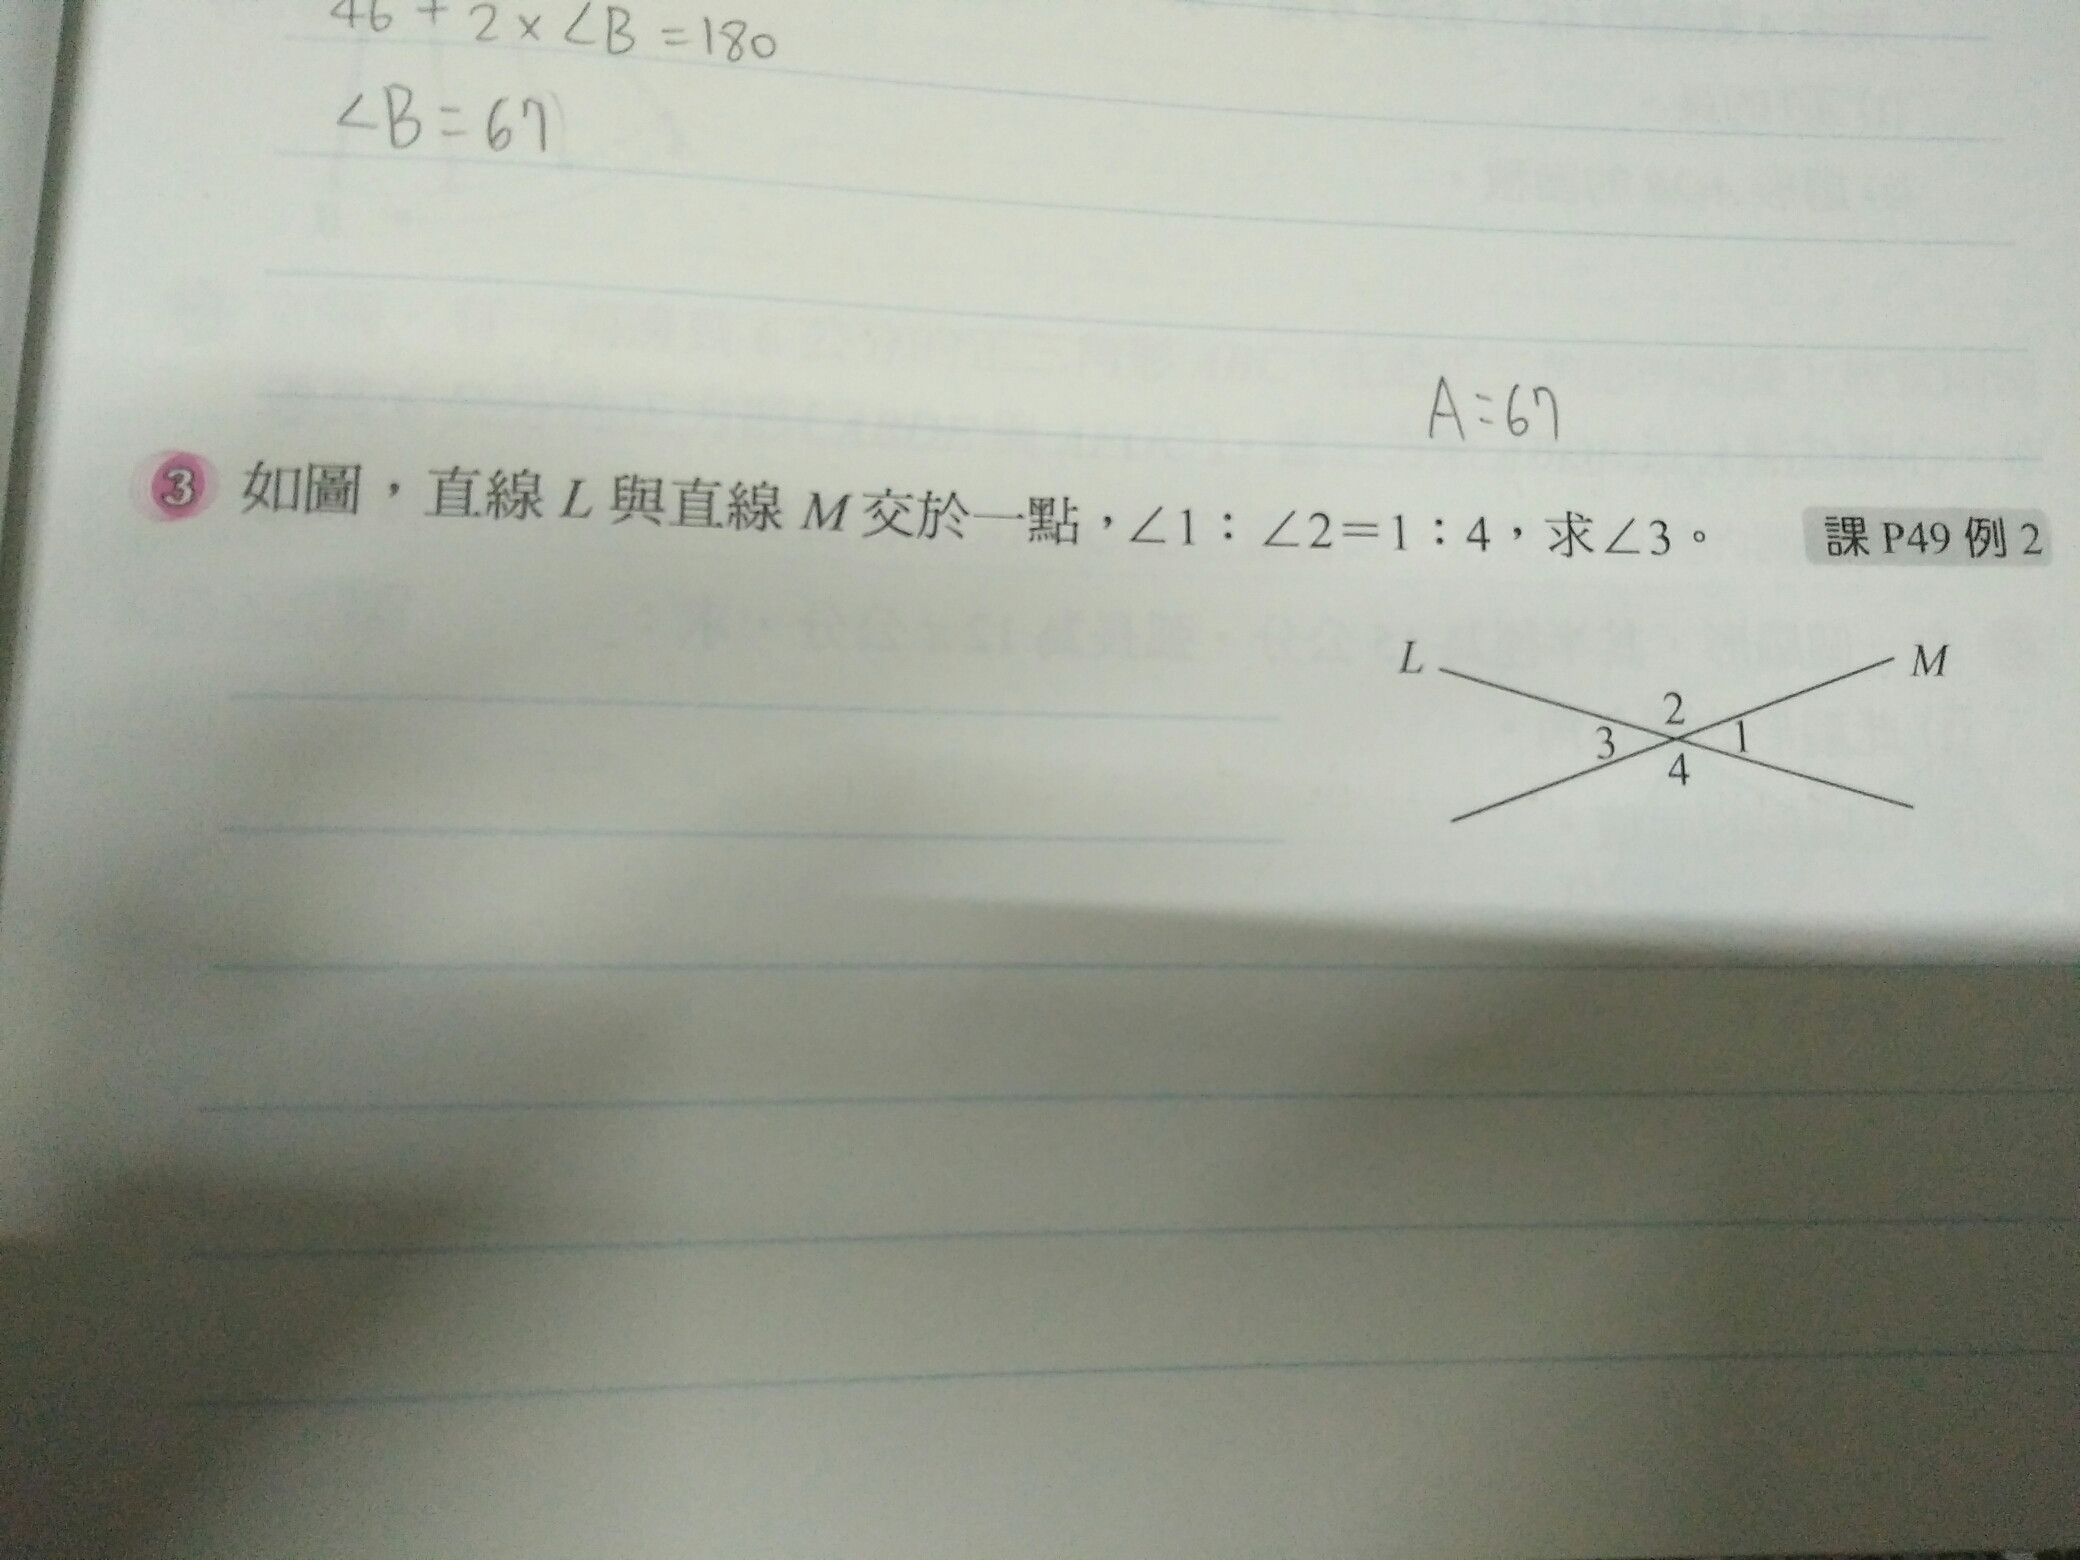 46 + 2 × ∠B = 180
∠B = 67
A = 67
3 如圖，直線 L 與直線 M 交於一點，∠1：∠2＝1：4，求∠3。 課 P49 例 2
L M
2
3 1
4